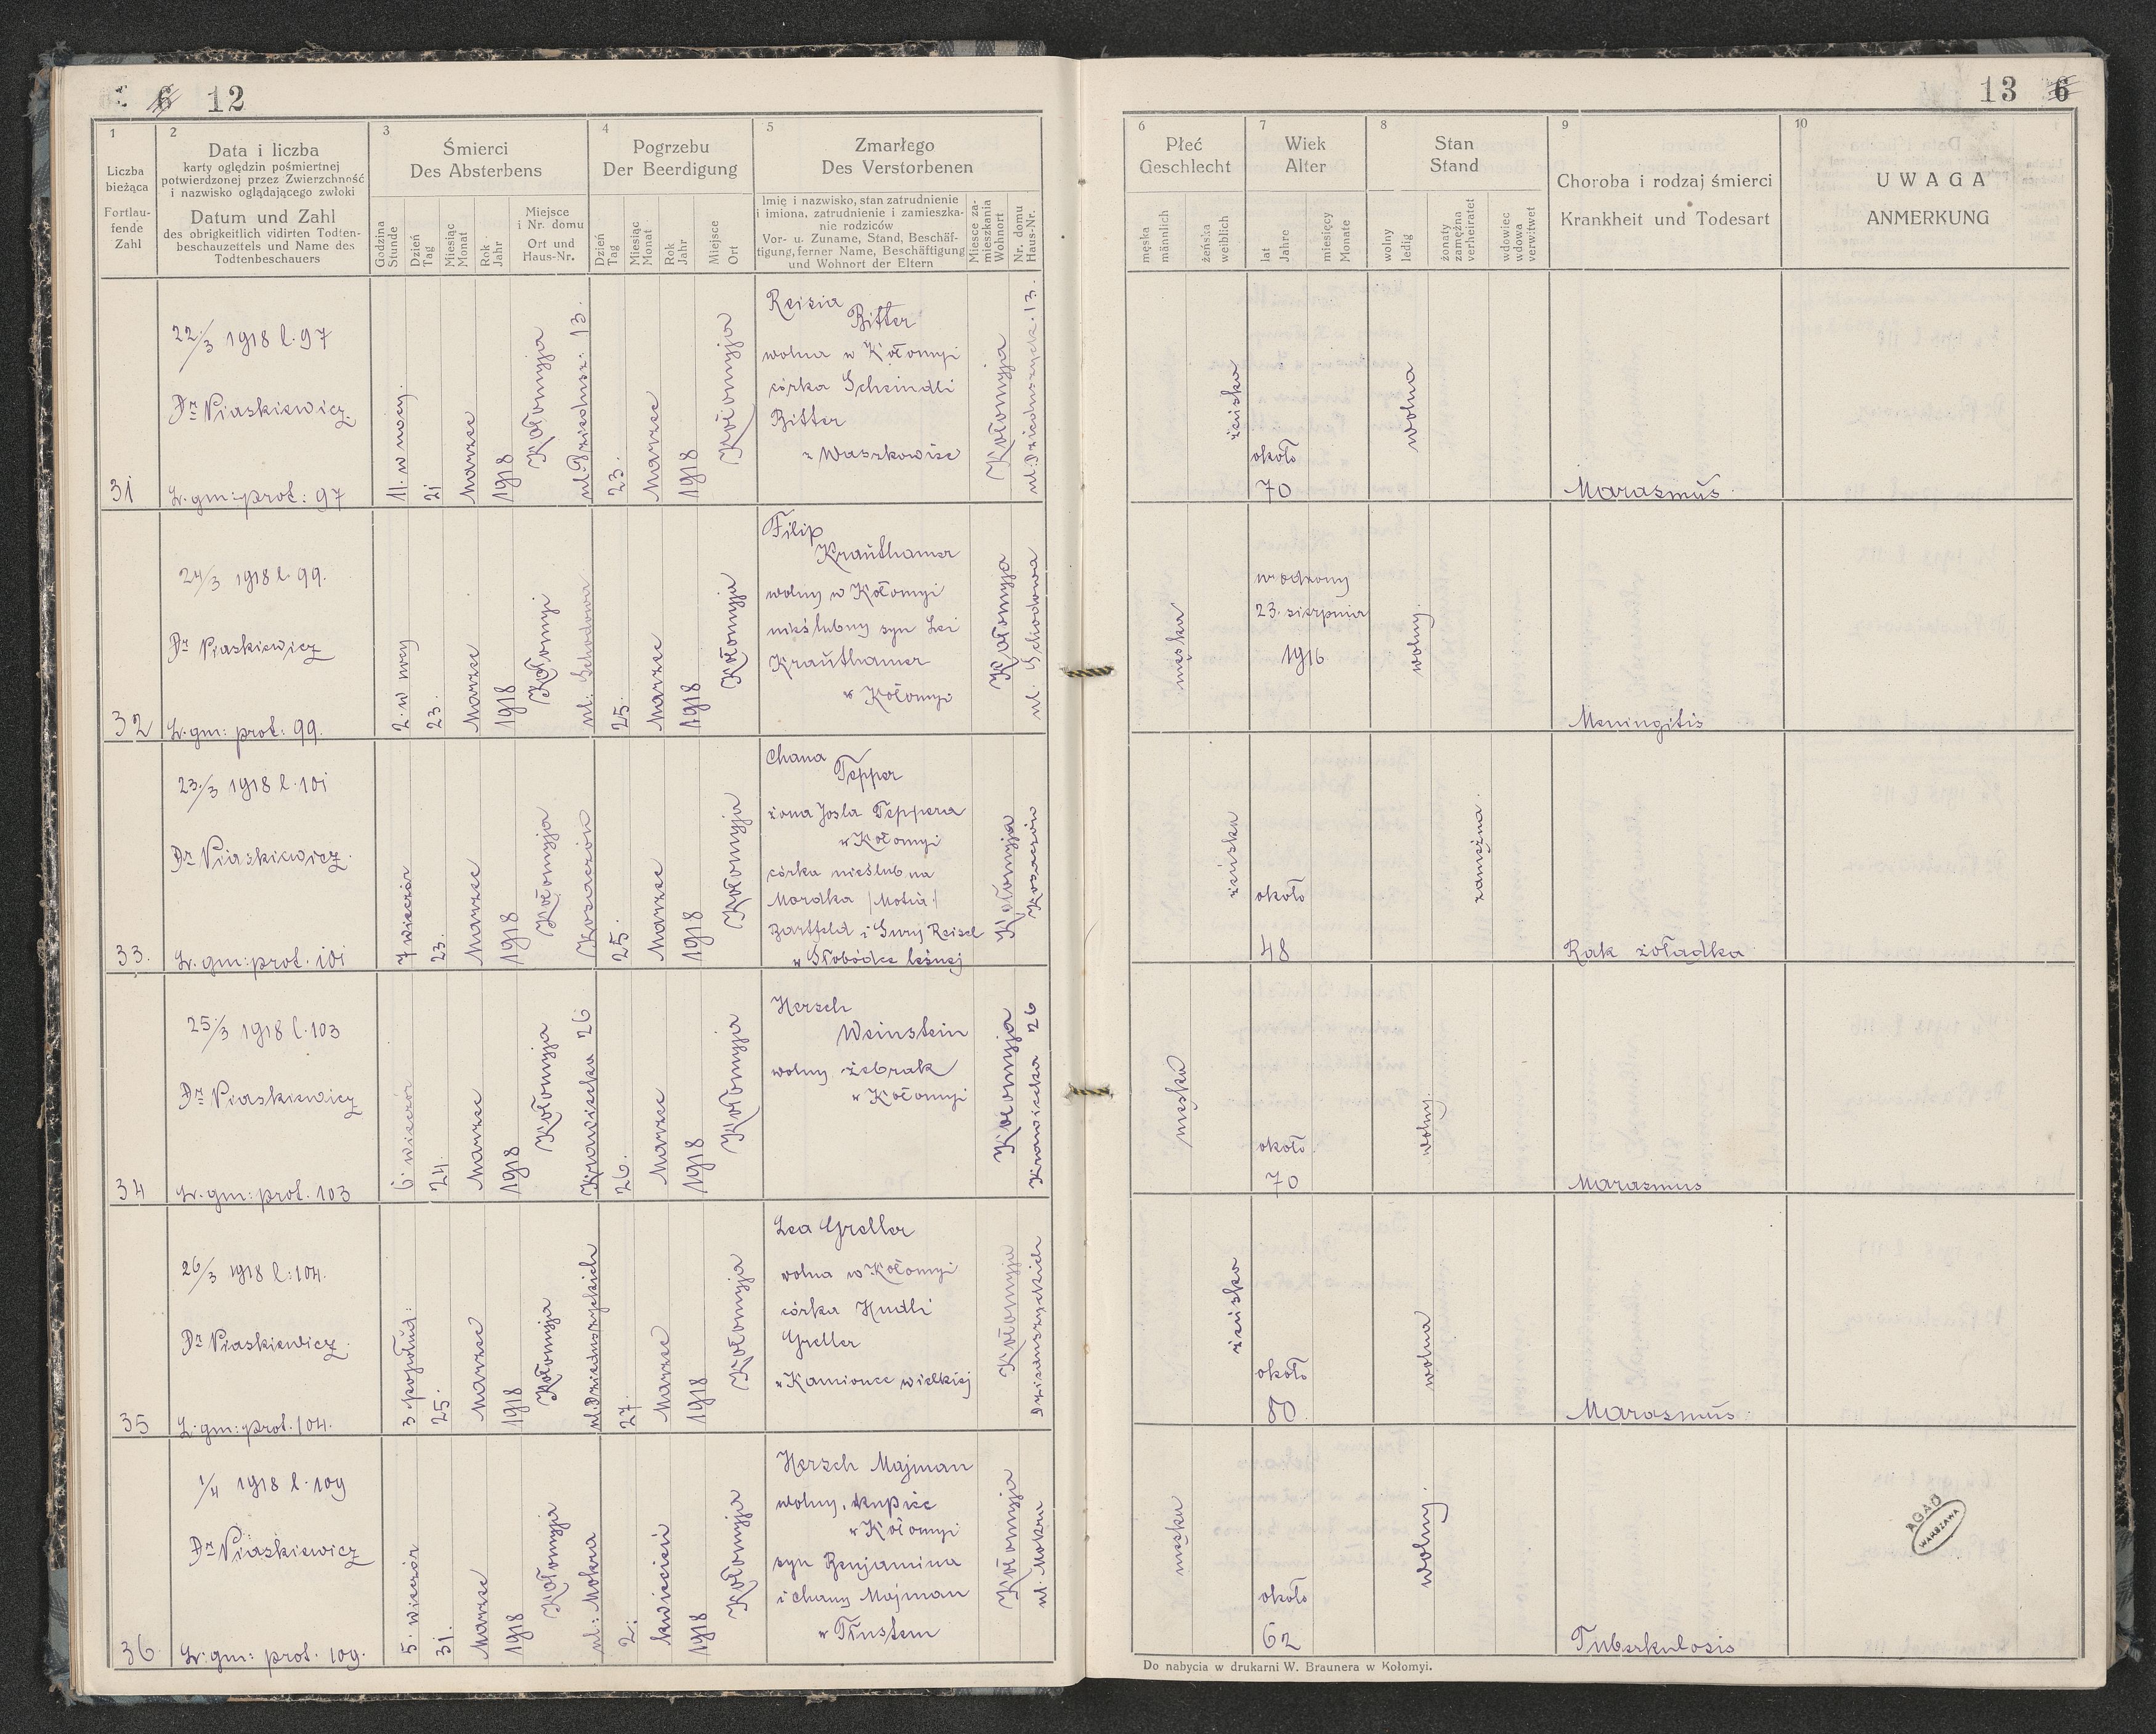 6 12
1
Liczba
bieżąca
Fortlau-
fende
Zahl
2
Data i liczba
karty oględzin pośmiertnej
potwierdzonej przez Zwierzchność
i nazwisko oglądającego zwłoki
Datum und Zahl
des obrigkeitlich vidirten Todten-
beschauzettels und Name des
Todtenbeschauers
3
Śmierci
Des Absterbens
Godzina
Stunde
Dzień
Tag
Miesiąc
Monat
Rok
Jahr
Miejsce
i Nr. domu
Ort und
Haus-Nr.
4
Pogrzebu
Der Beerdigung
Dzień
Tag
Miesiąc
Monat
Rok
Jahr
Miejsce
Ort
5
Zmarłego
Des Verstorbenen
Imię i nazwisko, stan zatrudnienie
i imiona, zatrudnienie i zamieszka-
nie rodziców
Vor- u. Zuname, Stand, Beschäf-
tigung, ferner Name, Beschäftigung
und Wohnort der Eltern
Miesce za-
mieszkania
Wohnort
Nr. domu
Haus-Nr.
31
22/3 1918 l. 97
Dr Piaskiewicz
L. gm: prot: 97
11. w nocy.
21
Marzec
1918
Kołomyja
ul. Dziedusz: 13.
23.
Marzec
1918
Kołomyja
Reisia
Bitter
wolna w Kołomyi
córka Scheindli
Bitter
z Waszkowiec
Kołomyja
ul. Dzieduszyck. 13.
32
24/3 1918 l. 99.
Dr Piaskiewicz
L. gm: prot: 99.
2. w nocy
23.
Marzec
1918
Kołomyi
ul: Schodowa
25.
Marzec
1918
Kołomyja
Filip
Krauthamer
wolny w Kołomyi
nieślubny syn Lei
Krauthamer
w Kołomyi
Kołomyja
ul. Schodowa
33.
23./3 1918 l. 101
Dr Piaskiewicz.
L. gm: prot. 101
7 wieczór
23.
Marzec
1918
Kołomyja
Kosaczów
25.
Marzec
1918
Kołomyja
Chana
Tepper
żona Josla Teppera
w Kołomyi
córka nieślubna
Mordka /Motia:/
Zartfeld i Sury Reisel
w Słobódce leśnej
Kołomyja
Kosaczów
34
25./3 1918 l. 103
Dr Piaskiewicz
L. gm: prot. 103
6 wieczór
24.
Marzec
1918
Kołomyja
Krawiecka 26
26.
Marzec
1918
Kołomyja
Hersch
Weinstein
wolny żebrak
w Kołomyi
Kołomyja
Krawiecka 26
35
26/3 1918 l: 104.
Dr Piaskiewicz.
L. gm: prot. 104.
3 popołud:
25.
Marzec
1918
Kołomyja
ul. Dzieduszyckich
27.
Marzec
1918
Kołomyja
Lea Greller
wolna w Kołomyi
córka Hudli
Greller
w Kamionce wielkiej
Kołomyja
Dzieduszyckich
36
1/4 1918 l. 109
Dr Piaskiewicz
L. gm: prot. 109.
5. wieczór
31.
Marzec
1918
Kołomyja
ul: Mokra
2.
kwiecień
1918
Kołomyja
Hersch Majman
wolny, kupiec
w Kołomyi
syn Benjamina
i Chany Majman
w Tłustem
Kołomyja
ul. Mokra
13 6
6
Płeć
Geschlecht
męska
männlich
żeńska
weiblich
7
Wiek
Alter
lat
Jahre
miesięcy
Monate
8
Stan
Stand
wolny
ledig
żonaty
zamężna
verheiratet
wdowiec
wdowa
verwitwet
9
Choroba i rodzaj śmierci
Krankheit und Todesart
10
UWAGA
ANMERKUNG
żeńska
około
70
wolna
Marasmus
męska
urodzony
23. sierpnia
1916
wolny.
Meningitis
żeńska
około
48
zamężna.
Rak żołądka
męska
około
70
wolny.
Marasmus
żeńska
około
80
wolna
Marasmus
męska
około
62
wolny.
Tuberkulosis
AGAD
WARSZAWA
Do nabycia w drukarni W. Braunera w Kołomyi.